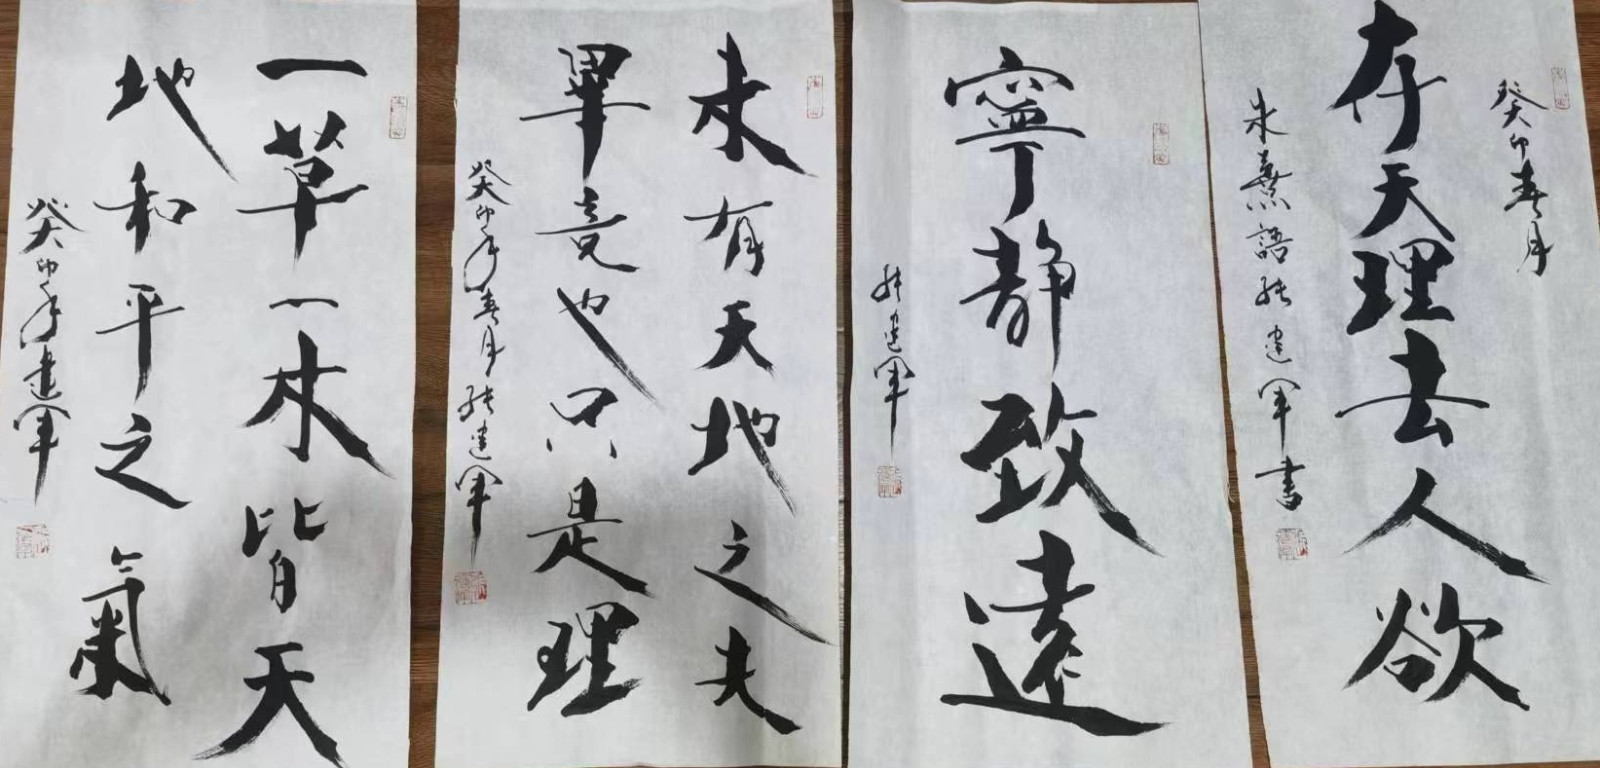 癸卯春月
存天理去人欲
朱熹語張建軍書
寧静致遠
張建軍
未有天地之先
畢竟也只是理
癸卯年春月張建軍
一草一木皆天
地和平之氣
癸卯年建軍